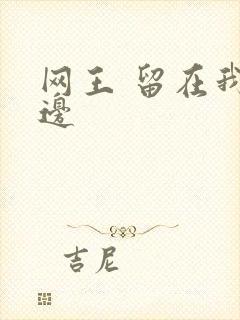 网王 留在我
邊
吉尼